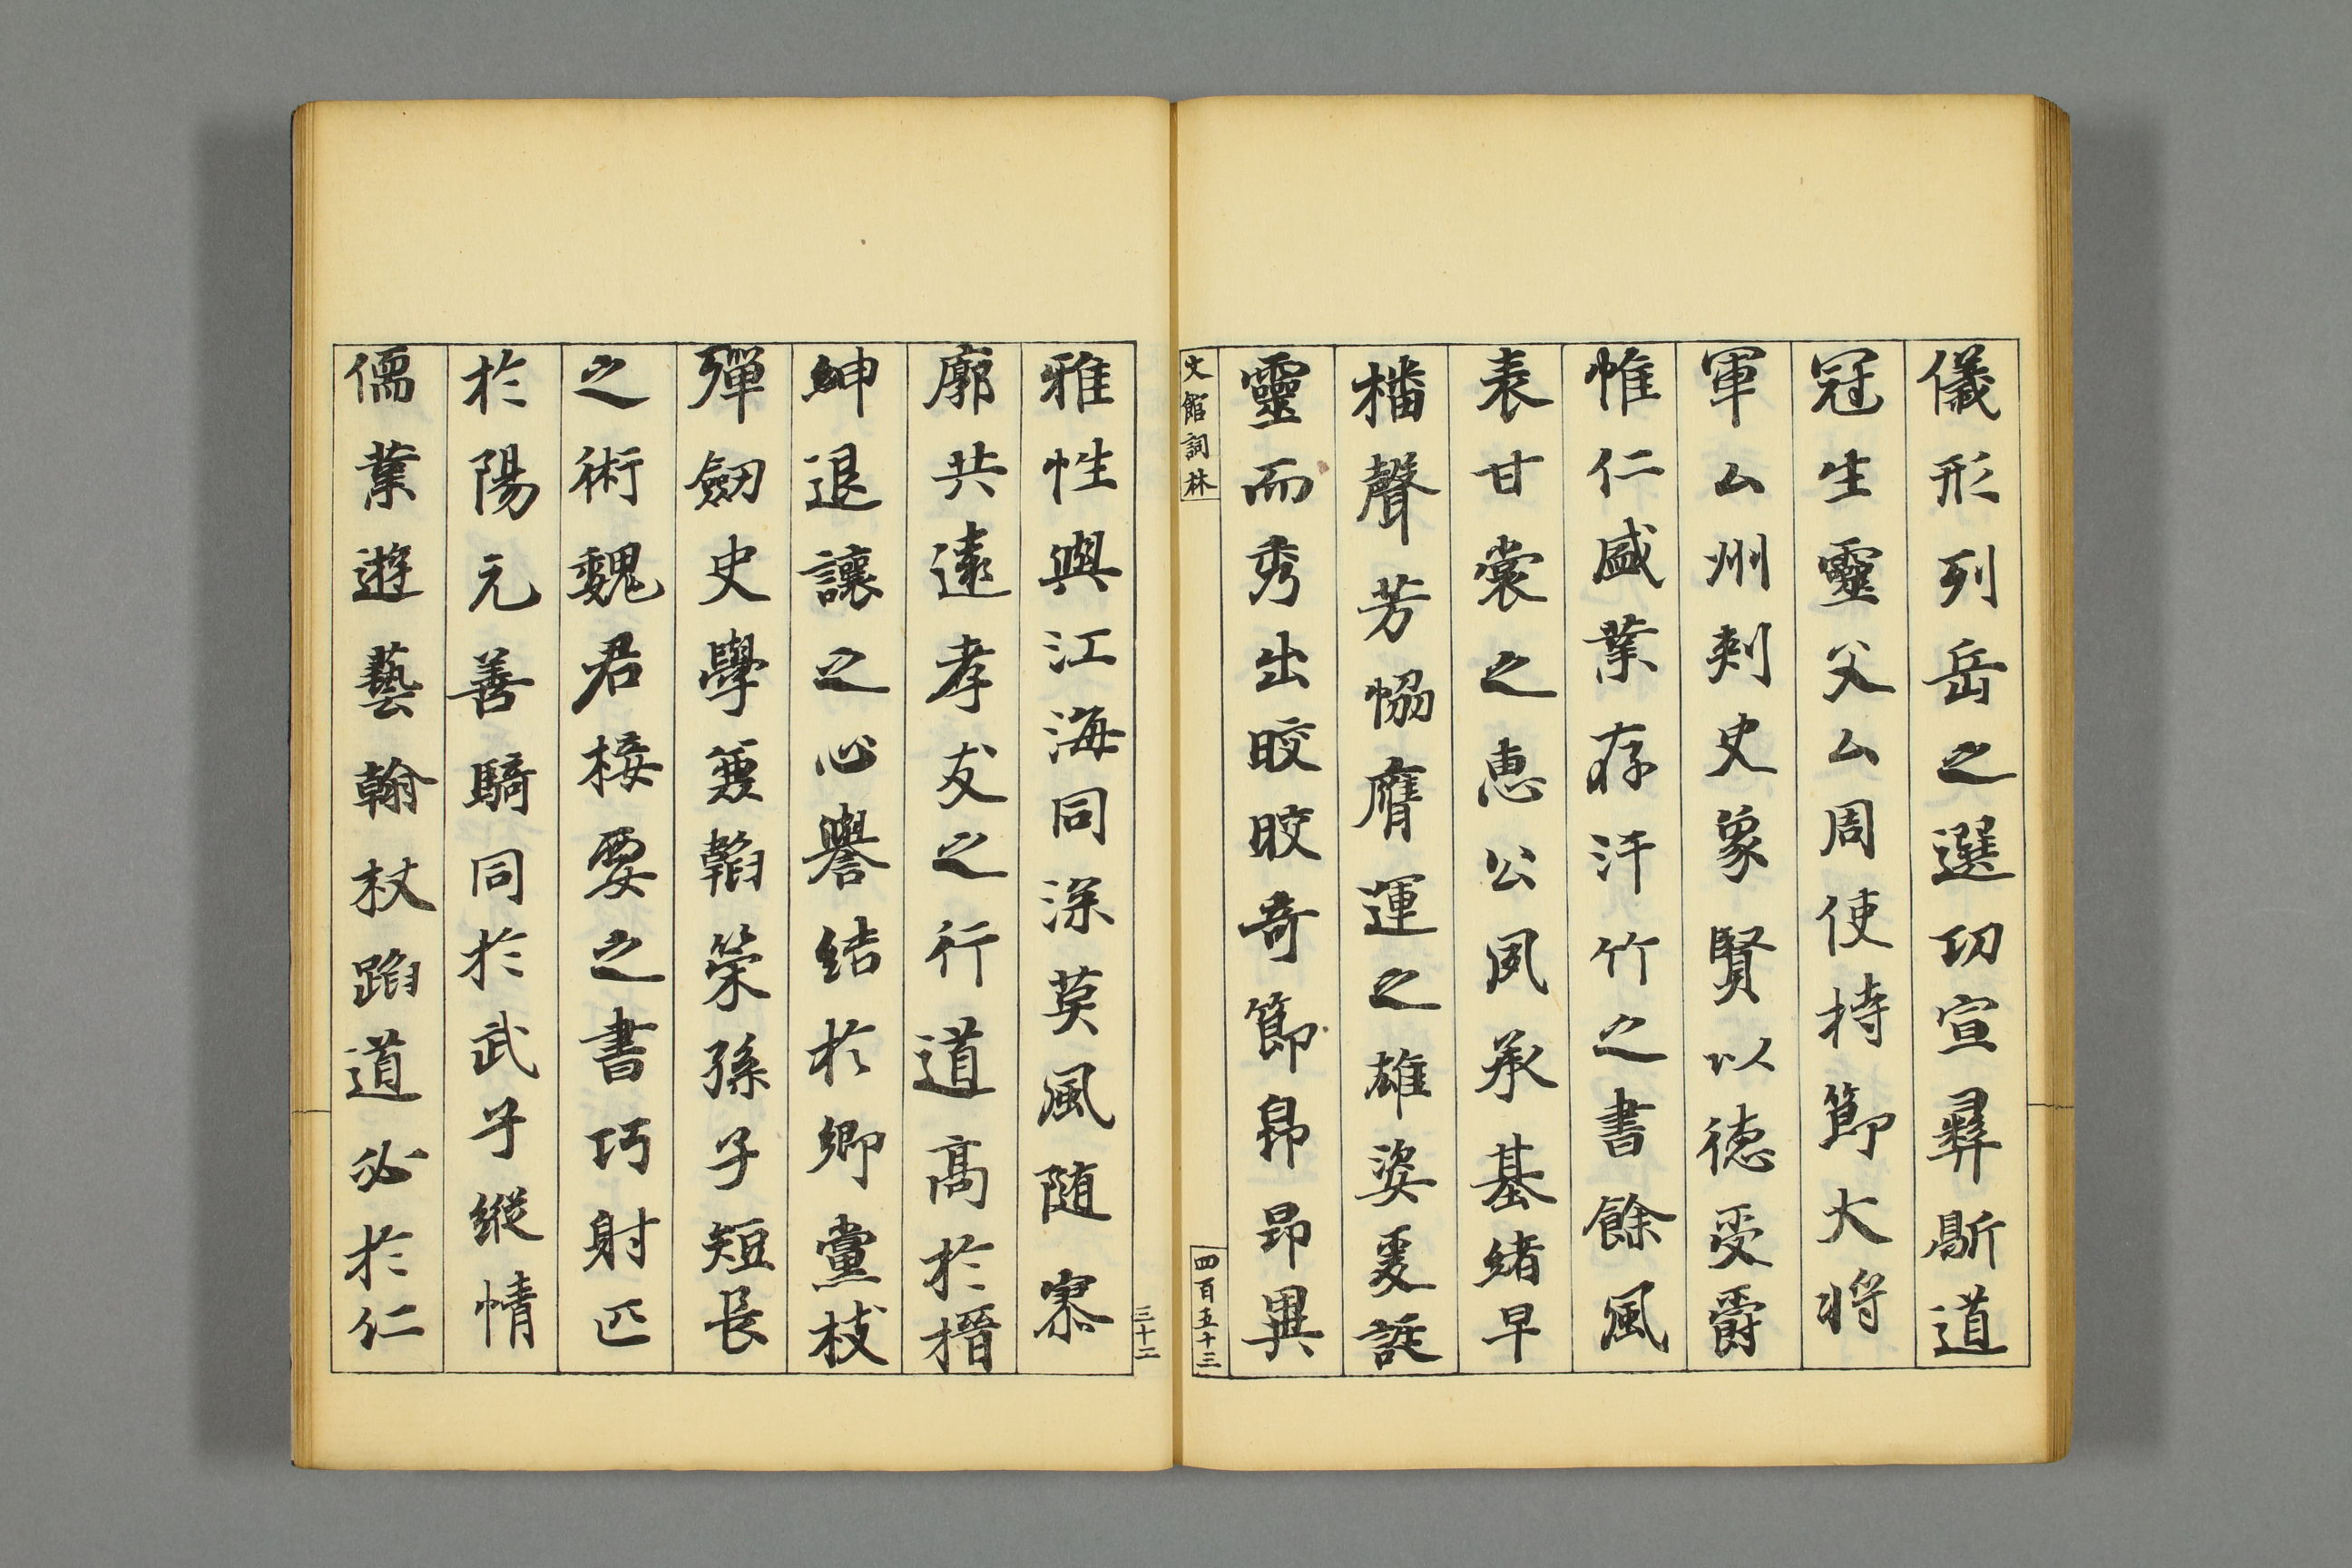 儀形列岳之選功宣彛斯道
冠生靈父厶周使持節大將
軍厶州刺史象賢以徳受爵
惟仁盛業存汗竹之書餘風
表甘裳之恵公夙承基緒早
播聲芳恊膺運之雄姿爰誕
靈而秀出皎皎奇節昂昂異
文館詞林
四百五十三
三十二
雅性與江海同深英風随寥
廓共遠孝友之行道高於搢
紳退讓之心譽結於鄉黨枝
彈劔史學兼韜策孫子短長
之術魏君接要之書巧射匹
於陽元善騎同於武子縱情
儒業遊藝翰林蹈道必於仁